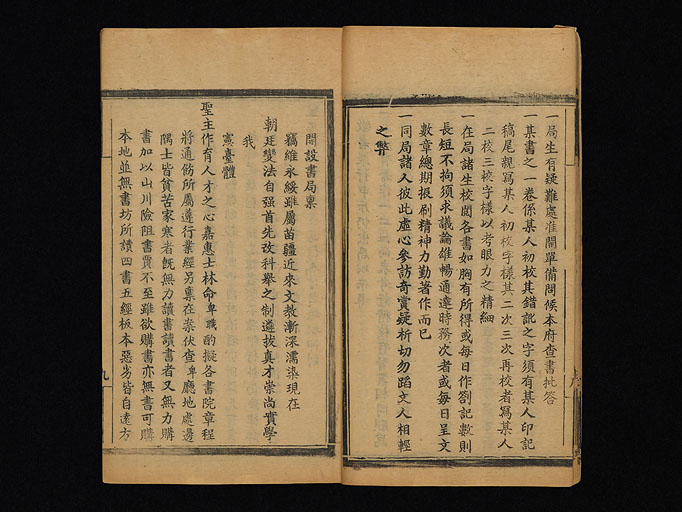 一局生有疑難處准開單備問候本府查書批答
一某書之一卷係某人初校其錯訛之字須有某人印記
稿尾親寫某人初校字樣其二次三次再校者寫某人
二校三校字樣以考眼力之精細
一在局諸生校閱各書如胸有所得或每日作劄記數則
長短不拘須求議論雄暢通達時務次者或每日呈文
數章總期振刷精神力勤著作而已
一同局諸人彼此虛心參訪奇賞疑析切勿蹈文人相輕
之弊
開設書局稟
竊維永綏雖屬苗疆近來文教漸深濡染現在
朝廷變法自强首先改科舉之制遴拔真才崇尚實學
我
憲臺體
聖主作育人才之心嘉惠士林命卑職酌擬各書院章程
將通飭所屬遵行業經另稟在案伏查卑廳地處邊
隅士皆貧苦家寒者既無力讀書讀書者又無力購
書加以山川險阻書賈不至雖欲購書亦無書可購
本地並無書坊所讀四書五經板本惡劣皆自遠方
九